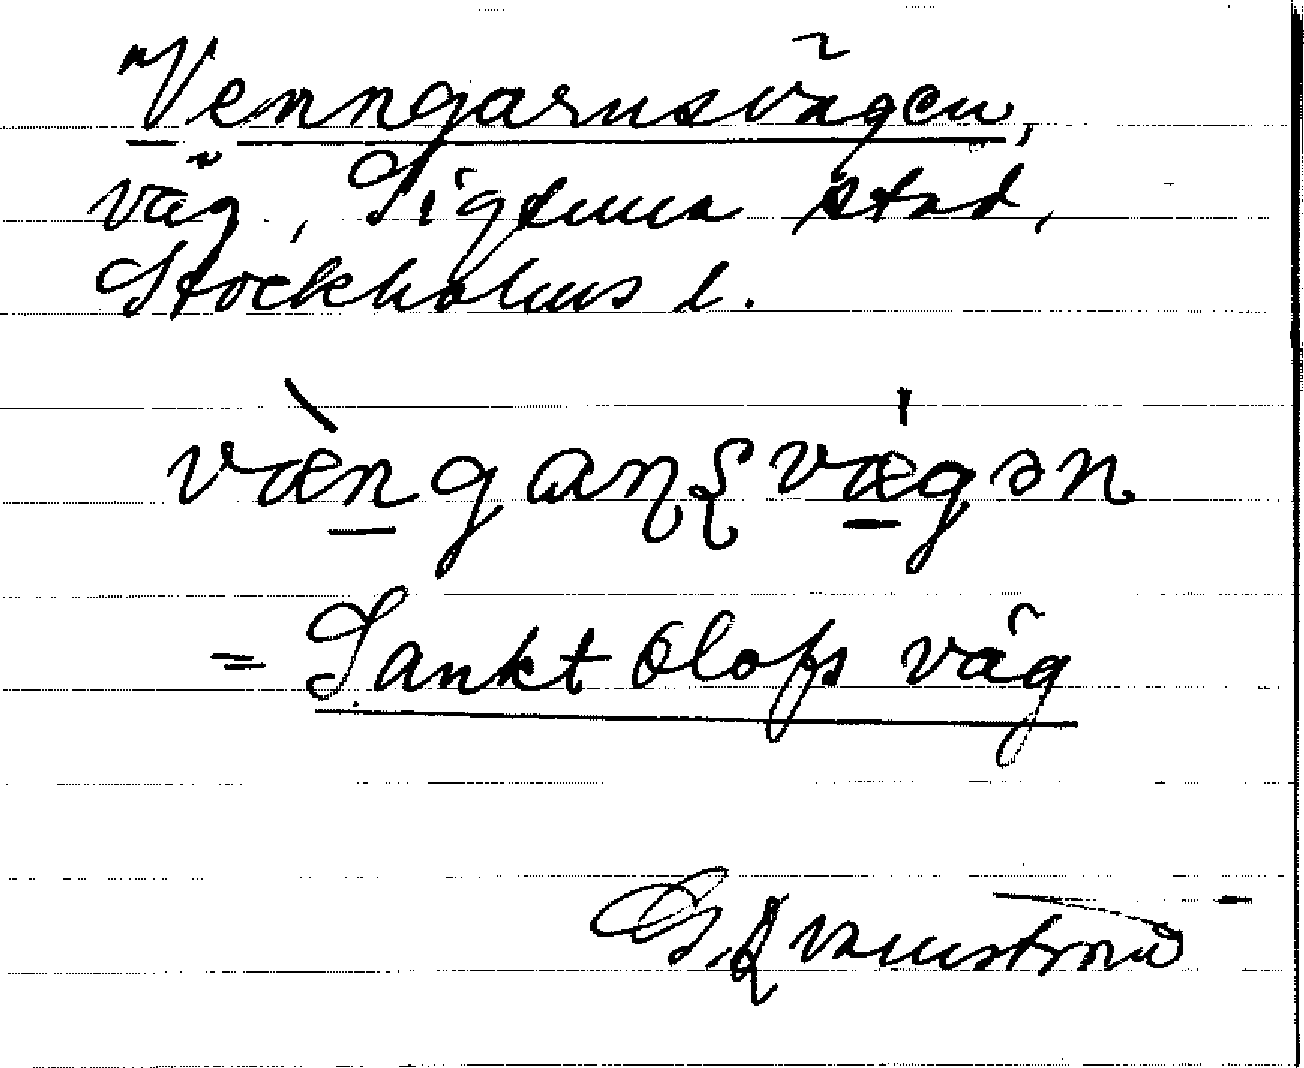 Venngarnsvägen,
väg, Sigtuna stad,
Stockholms l.
væ̀ngaɳʂvæ̍gən
= Sankt Olofs väg